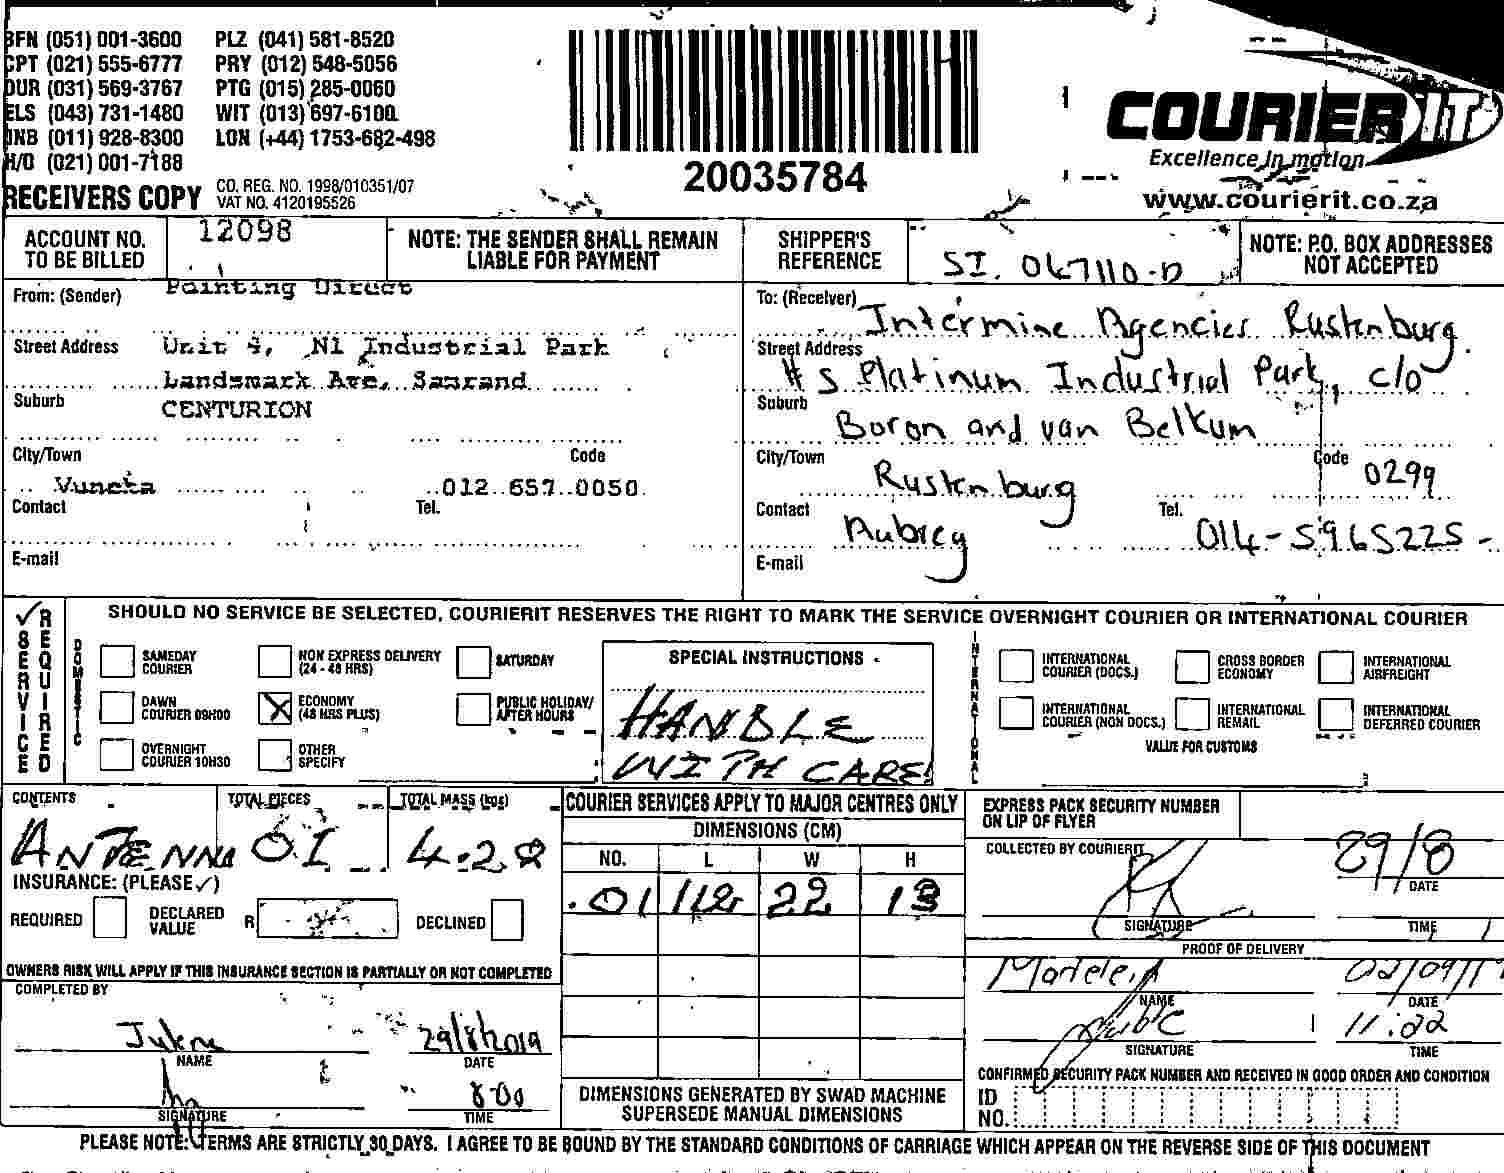 BFN (051) 001-3600 PLZ (041) 581-8520
CPT (021) 555-6777 PRY (012) 548-5056
DUR (031) 569-3767 PTG (015) 285-0060
ELS (043) 731-1480 WIT (013) 697-6100
JNB (011) 928-8300 LON (+44) 1753-682-498
H/O (021) 001-7188
RECEIVERS COPY CO. REG. NO. 1998/010351/07
VAT NO. 4120195526
20035784
COURIER IT
Excellence in motion
www.courierit.co.za
ACCOUNT NO. TO BE BILLED 12098
NOTE: THE SENDER SHALL REMAIN LIABLE FOR PAYMENT
SHIPPER'S REFERENCE SI. 047110-D
NOTE: P.O. BOX ADDRESSES NOT ACCEPTED
From: (Sender) Pointing Direct
Street Address Unit 4, N1 Industrial Park
Landsmark Ave, Samrand
Suburb CENTURION
City/Town Code
012 657 0050
Contact Tel.
E-mail
To: (Receiver) Intermine Agencies Rustenburg
Street Address # 5 Platinum Industrial Park, c/o
Suburb Boron and van Belkum
City/Town Rustenburg Code 0299
Contact Aubrey Tel. 014-5965225
E-mail
✓ SERVICE REQUIRED
SHOULD NO SERVICE BE SELECTED, COURIERIT RESERVES THE RIGHT TO MARK THE SERVICE OVERNIGHT COURIER OR INTERNATIONAL COURIER
DOMESTIC
SAMEDAY COURIER
NON EXPRESS DELIVERY (24 - 48 HRS)
SATURDAY
DAWN COURIER 09H00
X ECONOMY (48 HRS PLUS)
PUBLIC HOLIDAY/ AFTER HOURS
OVERNIGHT COURIER 10H30
OTHER SPECIFY
SPECIAL INSTRUCTIONS
HANDLE
WITH CARE!
INTERNATIONAL
INTERNATIONAL COURIER (DOCS.)
CROSS BORDER ECONOMY
INTERNATIONAL AIRFREIGHT
INTERNATIONAL COURIER (NON DOCS.)
INTERNATIONAL REMAIL
INTERNATIONAL DEFERRED COURIER
VALUE FOR CUSTOMS
CONTENTS TOTAL PIECES TOTAL MASS (kgs)
ANTENNA 01
INSURANCE: (PLEASE ✓)
REQUIRED DECLARED VALUE R DECLINED
OWNERS RISK WILL APPLY IF THIS INSURANCE SECTION IS PARTIALLY OR NOT COMPLETED
COMPLETED BY
29/8/2019
NAME DATE
8:00
SIGNATURE TIME
COURIER SERVICES APPLY TO MAJOR CENTRES ONLY
DIMENSIONS (CM)
NO. L W H
01 112 22 13
DIMENSIONS GENERATED BY SWAD MACHINE SUPERSEDE MANUAL DIMENSIONS
EXPRESS PACK SECURITY NUMBER ON LIP OF FLYER
COLLECTED BY COURIERIT
29/8
DATE
SIGNATURE TIME
PROOF OF DELIVERY
02/09/1
NAME DATE
11:22
SIGNATURE TIME
CONFIRMED SECURITY PACK NUMBER AND RECEIVED IN GOOD ORDER AND CONDITION
ID NO.
PLEASE NOTE: TERMS ARE STRICTLY 30 DAYS. I AGREE TO BE BOUND BY THE STANDARD CONDITIONS OF CARRIAGE WHICH APPEAR ON THE REVERSE SIDE OF THIS DOCUMENT